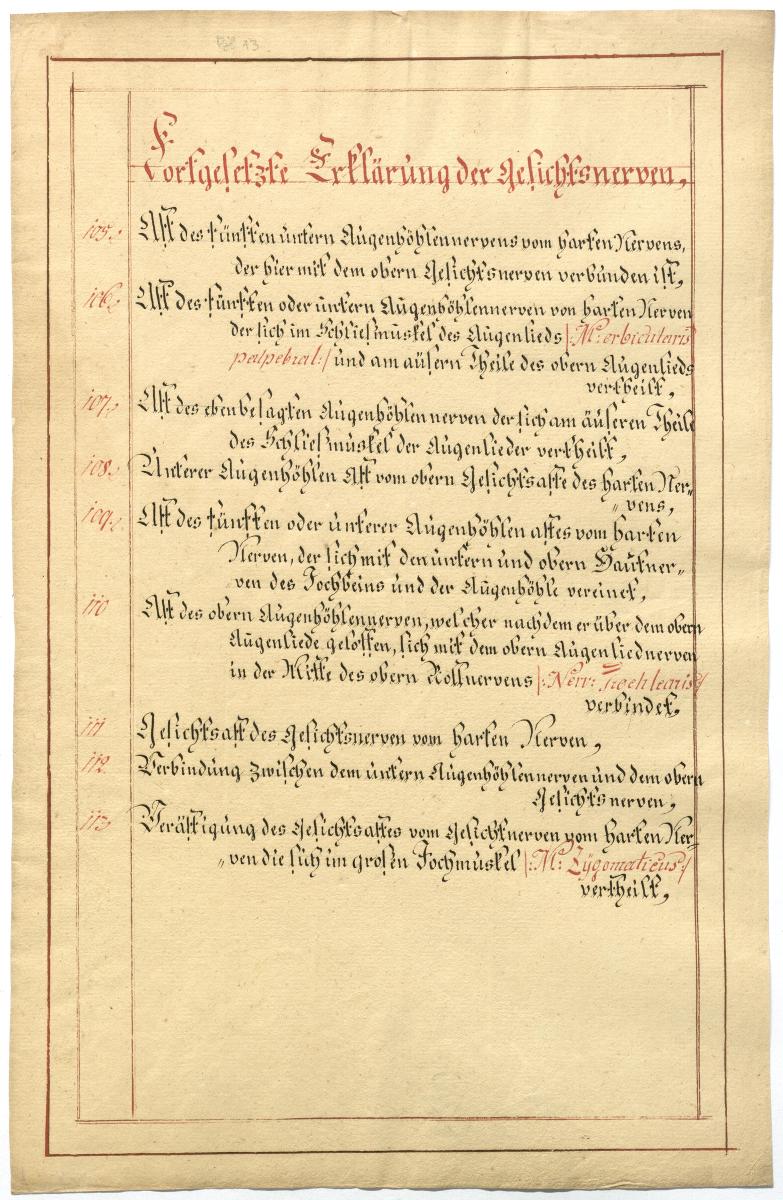 Fortgesetzte Erklärung der Gesichtsnerven,
105. Ast des fünften untern Augenhöhlennervens vom harten Nervens,
der hier mit dem obern Gesichtsnerven verbunden ist,
106. Ast des fünften oder untern Augenhöhlennerven von harten Nerven
der sich im Schließmuskel des Augenlieds |: M: orbicularis
palpebral: | und am äusern Theile des obern Augenlieds
vertheilt,
107. Ast des ebenbesagten Augenhöhlennerven der sich am äuseren Theile
des Schließmuskel der Augenlieder vertheilt,
108. Unterer Augenhöhlen Ast vom obern Gesichtsaste des harten Ner„
„vens,
109. Ast des fünften oder unterer Augenhöhlen astes vom harten
Nerven, der sich mit den untern und obern Hautner„
ven des Jochbeins und der Augenhöhle vereinet,
110 Ast des obern Augenhöhlennerven, welcher nachdem er über dem obern
Augenliede geloffen, sich mit dem obern Augenliednerven
in der Mitte des obern Rollnervens |: Nerv: Trochlearis: |
verbindet,
111 Gesichtsast des Gesichtsnerven vom harten Nerven,
112. Verbindung zwischen dem untern Augenhöhlennerven und dem obern
Gesichtsnerven,
113 Verästigung des Gesichtsastes vom Gesichtnerven vom harten Ner„
„ven die sich im großen Jochmuskel |: M: Zÿgomaticus: |
vertheilt,